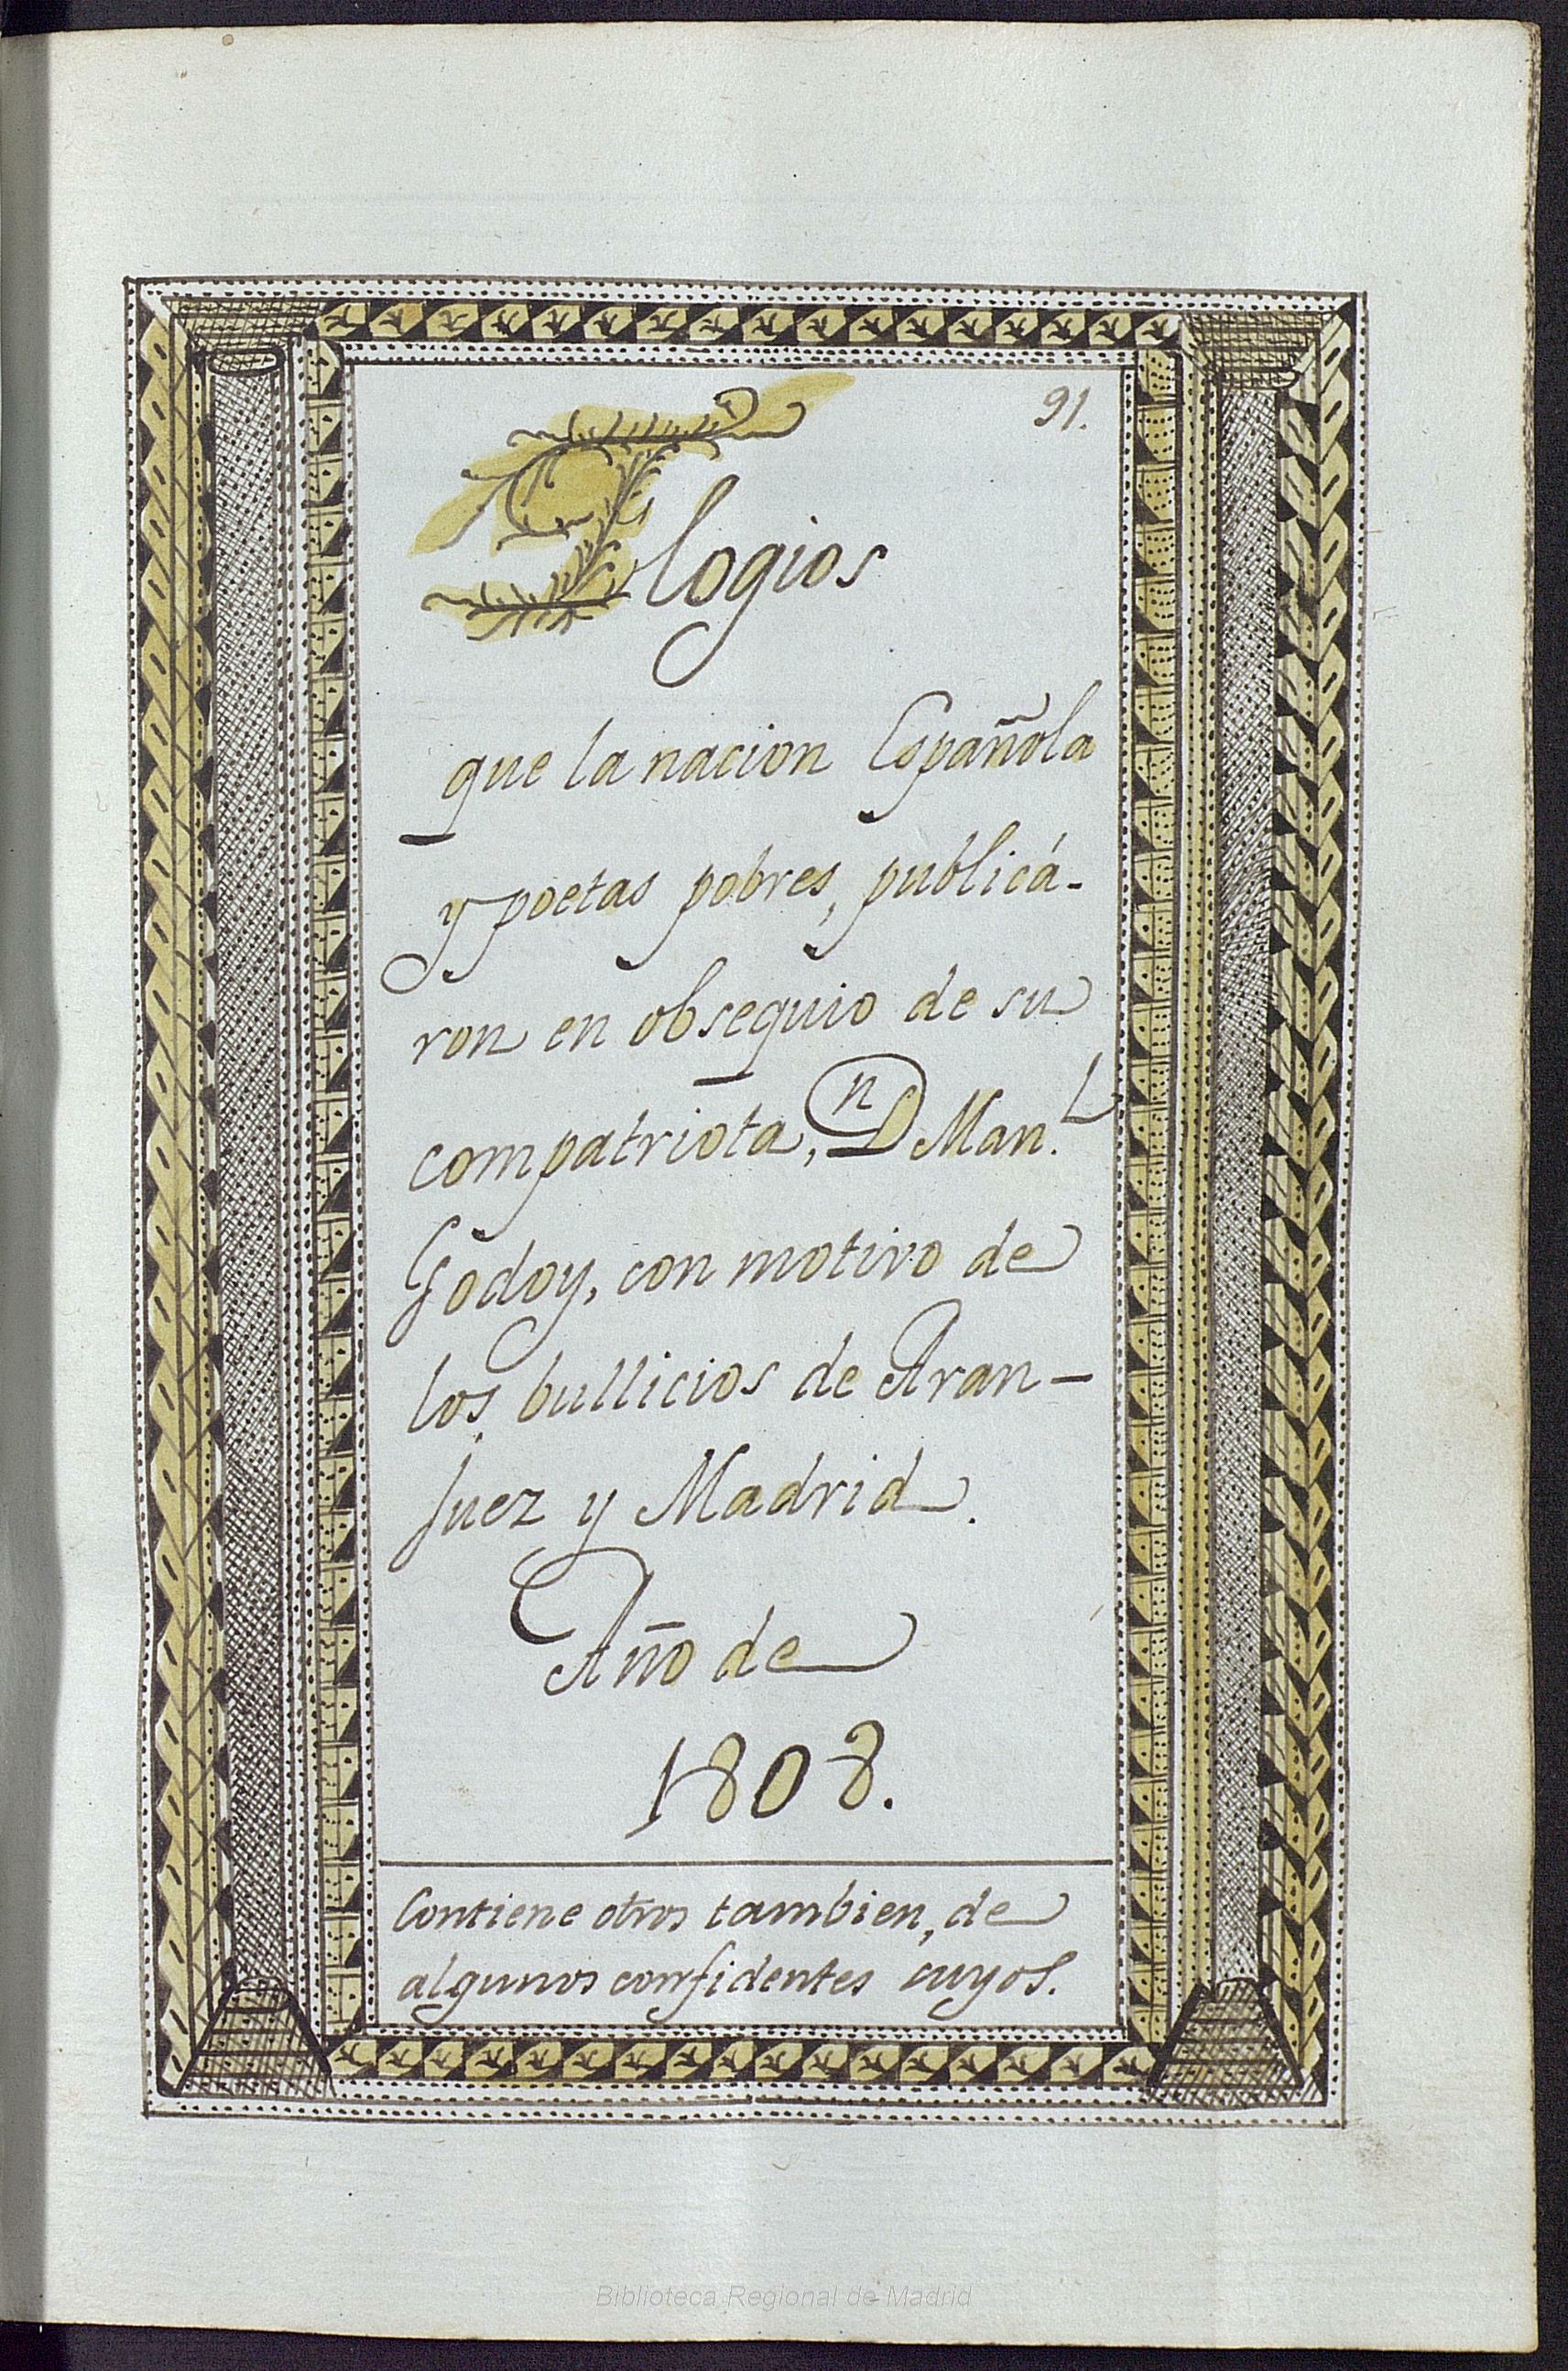 91.
Elogios
que la nacion Española
y poetas pobres, publicá-
ron en obsequio de su
compatriota, Dn Man.l
Godoy, con motivo de
los bullicios de Aran-
juez y Madrid.
Año de
1808.
Contiene otros tambien, de
algunos confidentes cuyos.
Biblioteca Regional de Madrid